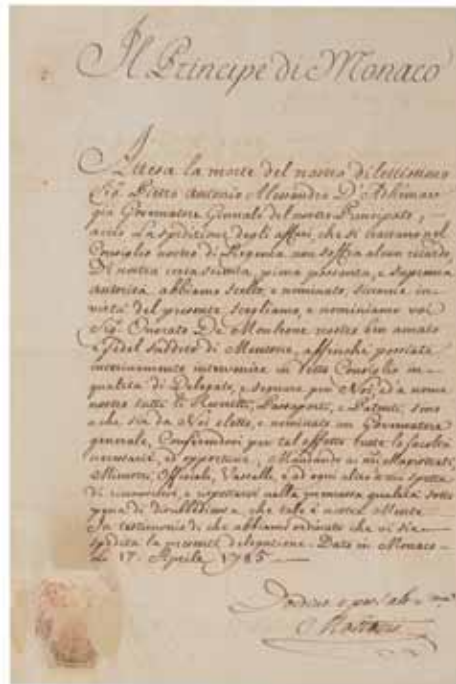 Il Principe di Monaco
Attesa la morte del nostro dilettissimo
Sig. Pietro Antonio Alessandro D'Adhemar
già Governatore Generale del nostro Principato,
acciò la spedizione degli affari, che si trattano nel
Consiglio nostro di Regenza non soffra alcun ritardo,
Di nostra certa scienza, piena possanza, e suprema
autorità abbiamo scelto, e nominato, siccome in
virtù del presente scegliamo, e nominiamo voi
Sig. Onorato De Monleone nostro ben amato
e fedel suddito di Mentone, affinche possiate
interinamente intervenire in detto Consiglio in
qualità di Delegato, e segnare per Noi, ed a nome
nostro tutti li Passaporti, e Patenti, sino
a che sia da Noi eletto, e nominato un Governatore
generale, Conferendovi per tal effetto tutte le facoltà
necessarie, ed opportune, Mandando ai nri Magistrati,
Ministri, Officiali, Vassalli, e ad ogni altro a cui spetta
di riconoscervi, e rispettarvi nella premessa qualità sotto
pena di disubbidienza, che tale è nostra Mente
In testimonio di che abbiamo ordinato che vi sia
spedita la presente delegazione. Dato in Monaco
li 17. Aprile 1785